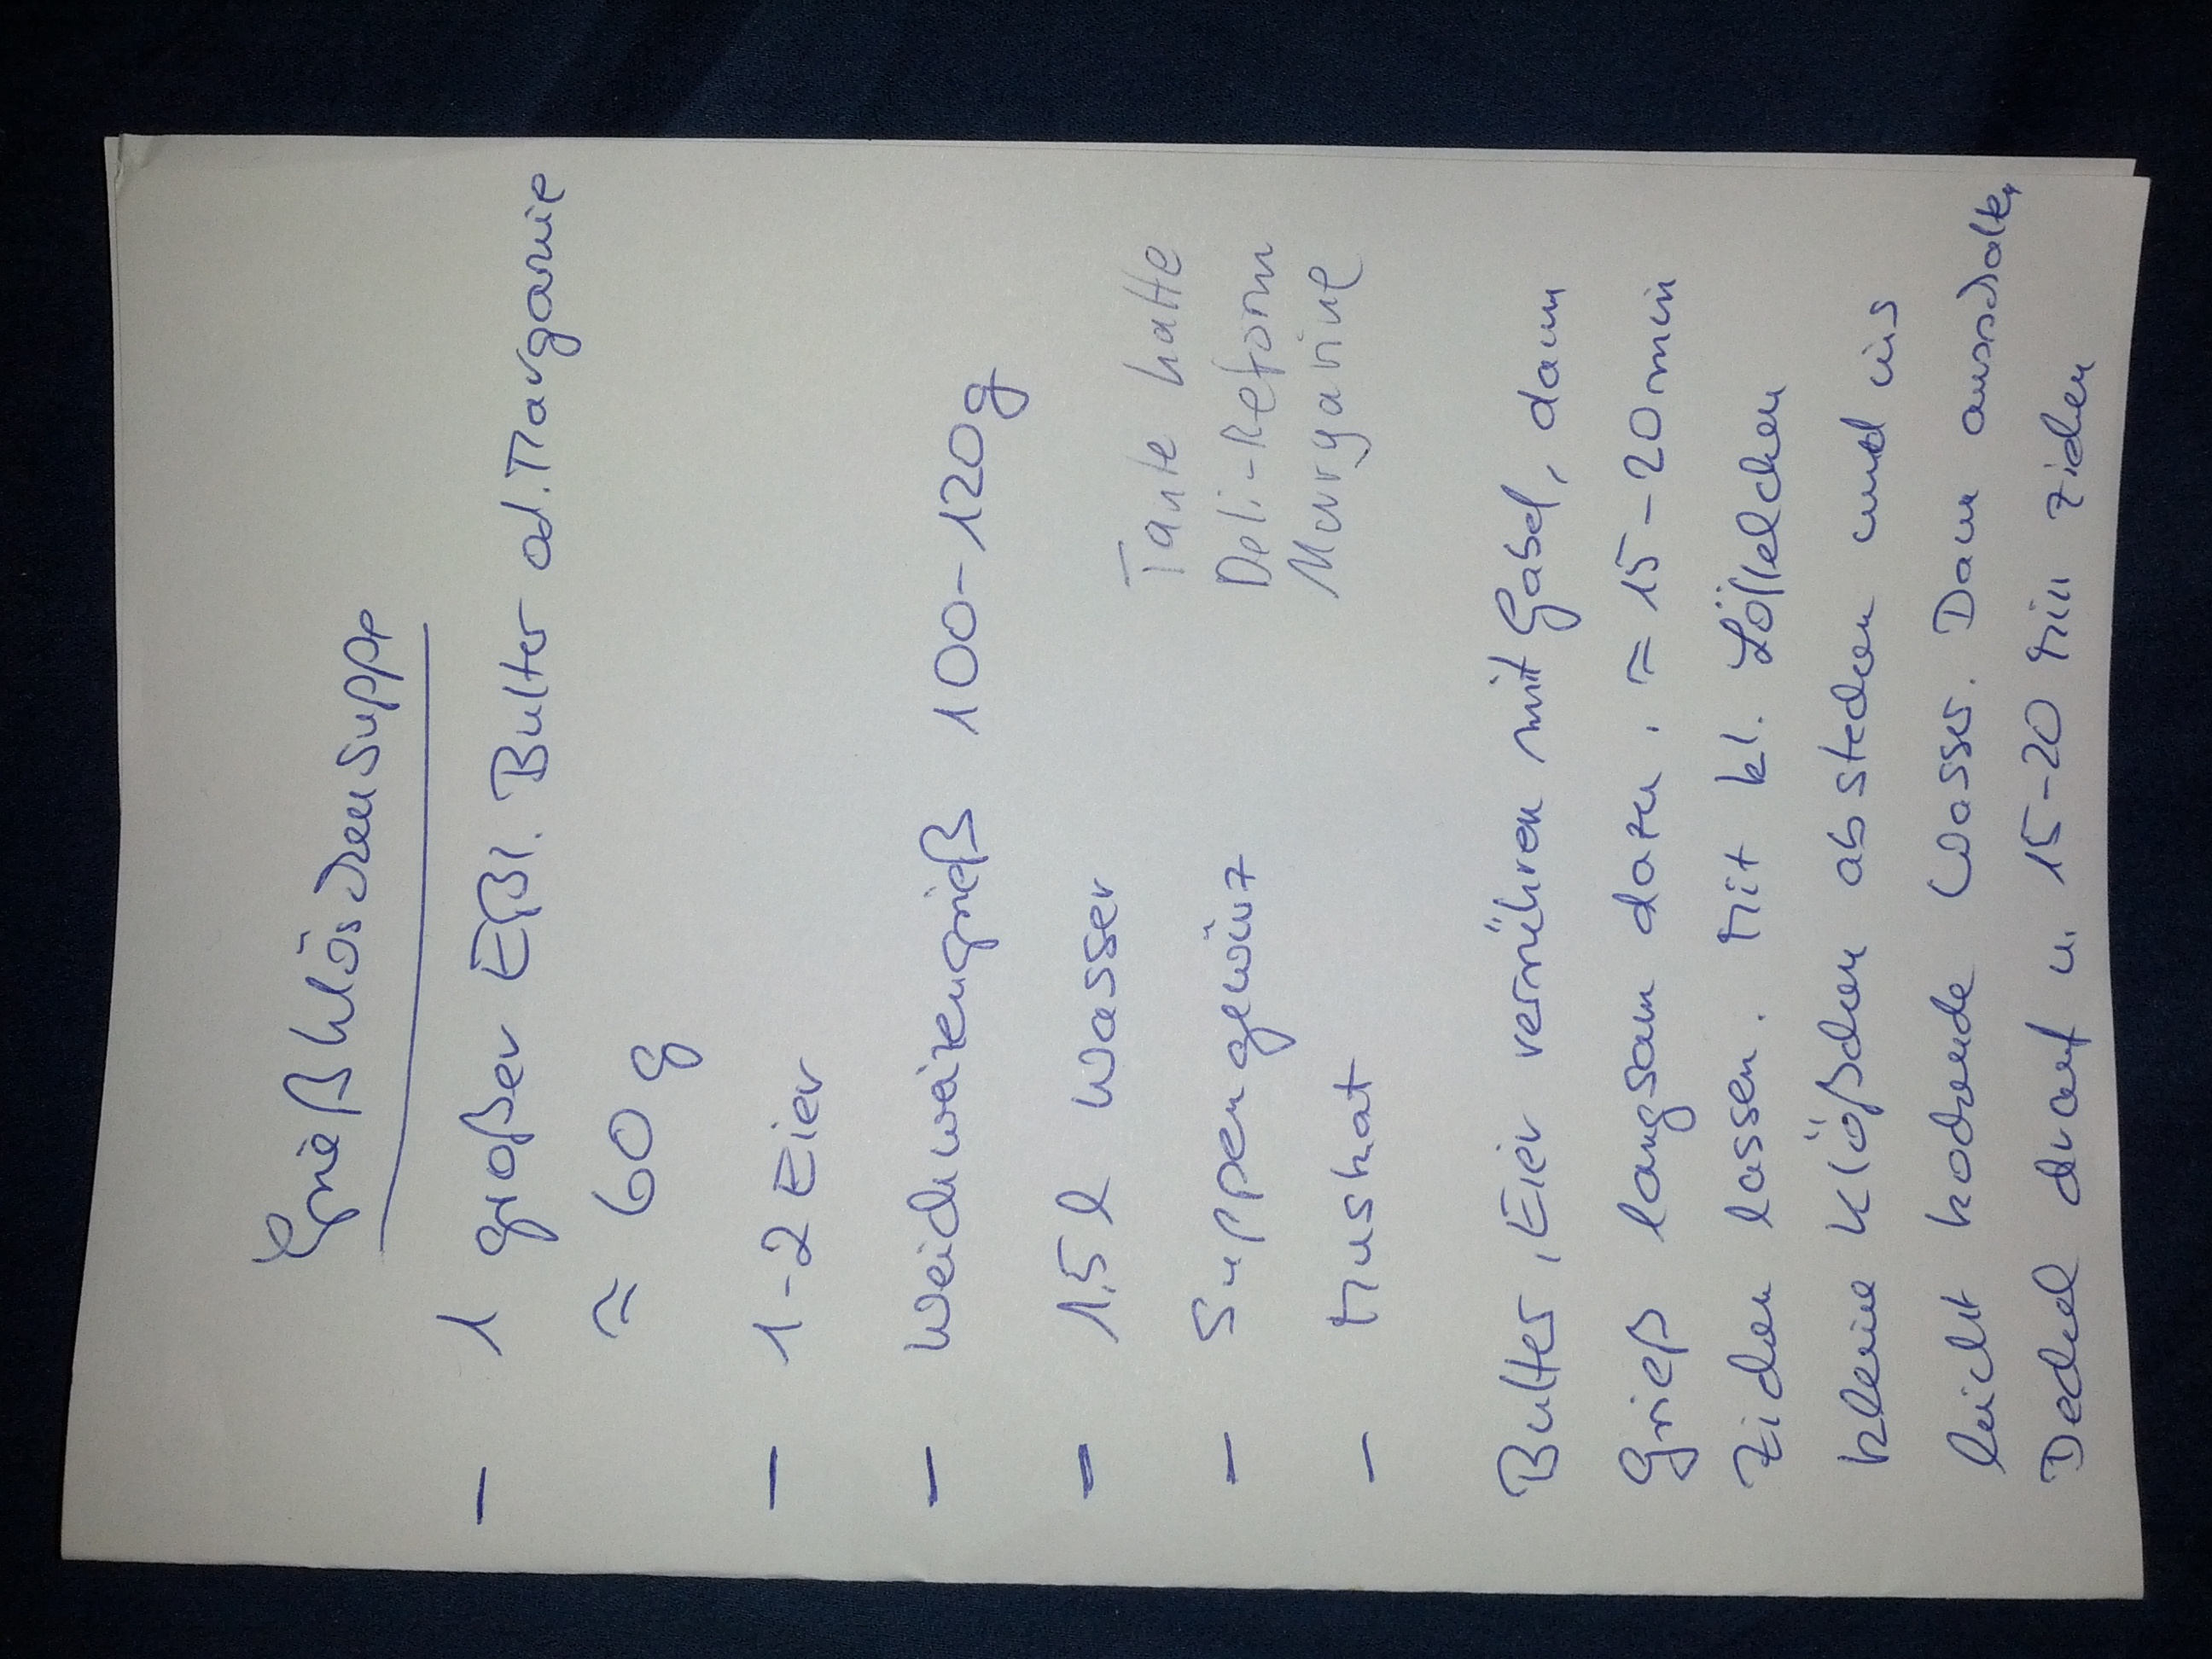 Grießklöschensuppe
- 1 großer Eßl. Butter od. Margarine
≈ 60 g
- 1-2 Eier
- Weichweizengrieß 100-120g
- 1,5 l Wasser
- Suppengewürz
- Muskat
Tante hatte
Deli-Reform
Margarine
Butter, Eier verrühren mit Gabel, dann
Grieß langsam dazu. ≈ 15-20 min
ziehen lassen. Mit kl. Löffelchen
kleine Klößchen abstechen und ins
leicht kochende Wasser. Dann ausschalten,
Deckel drauf u. 15-20 Min ziehen